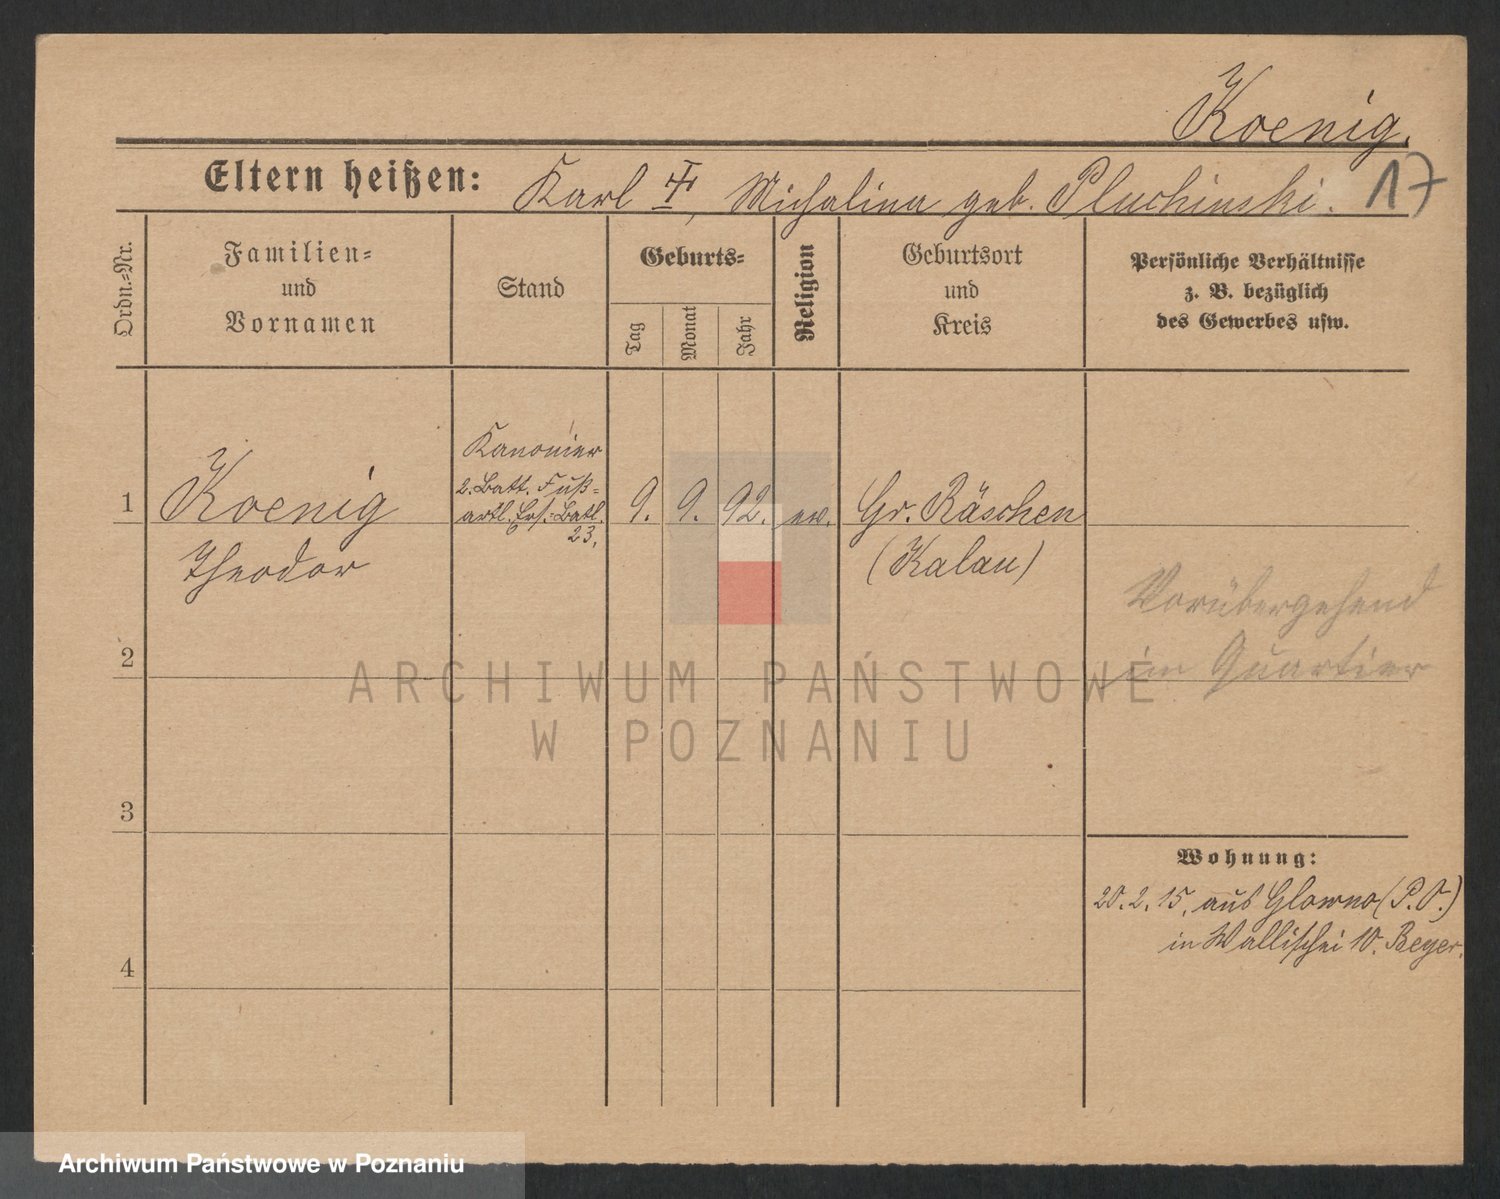 Koenig.
17
Eltern heißen: Karl †, Michalina geb. Pluchinski.
Ordn.-Nr.
Familien-
und
Vornamen
Stand
Geburts-
Tag
Monat
Jahr
Religion
Geburtsort
und
Kreis
Persönliche Verhältnisse
z. B. bezüglich
des Gewerbes usw.
1
Koenig
Theodor
Kanonier
2. Batt. Fuß-
artl. Ers.-Batl.
23.
9. 9. 92. ev.
Gr. Räschen
(Kalau)
Vorübergehend
im Quartier
2
3
4
Wohnung:
20. 2. 15. aus Glowno (P. O.)
in Wallischei 10. Beyer.
ARCHIWUM PAŃSTWOWE
W POZNANIU
Archiwum Państwowe w Poznaniu